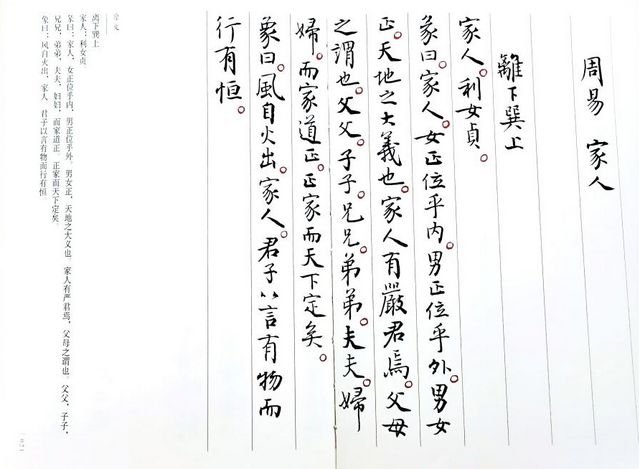 周易 家人
離下巽上
家人。利女貞。
彖曰。家人。女正位乎内。男正位乎外。男女
正。天地之大義也。家人有嚴君焉。父母
之謂也。父父。子子。兄兄。弟弟。夫夫。婦
婦。而家道正。正家而天下定矣。
象曰。風自火出。家人。君子以言有物而
行有恒。
释文
离下巽上
家人：利女贞
彖曰：家人，女正位乎内，男正位乎外。男女正，天地之大义也。家人有严君焉，父母之谓也。父父，子子，
兄兄，弟弟，夫夫，妇妇，而家道正。正家而天下定矣。
象曰：风自火出，家人。君子以言有物而行有恒。